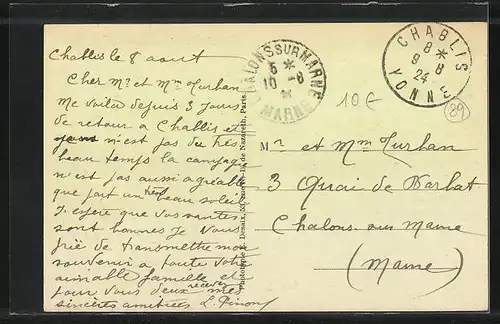 Chablis le 8 aout
Cher Mr et Mme Turhan
Me voilà depuis 3 jours
de retour a Chablis et
n'est pas du très
beau temps la campagne
n'est pas aussi agréable
que par un très beau soleil
J'espère que vos santés
sont bonnes Je vous
prie de transmettre mon
souvenir a toute votre
aimable famille et
pour vous deux recevez mes
sincères amitiées L.
CHALONS SUR MARNE
5 *
10 -8
MARNE
CHABLIS
8 *
9 8
24
YONNE
10 €
89
Phototypie A. Desaix, Rue N.-D. de Nazareth, Paris
Mr et Mme Turhan
3 Quai de Barbat
Chalons sur Marne
(Marne)